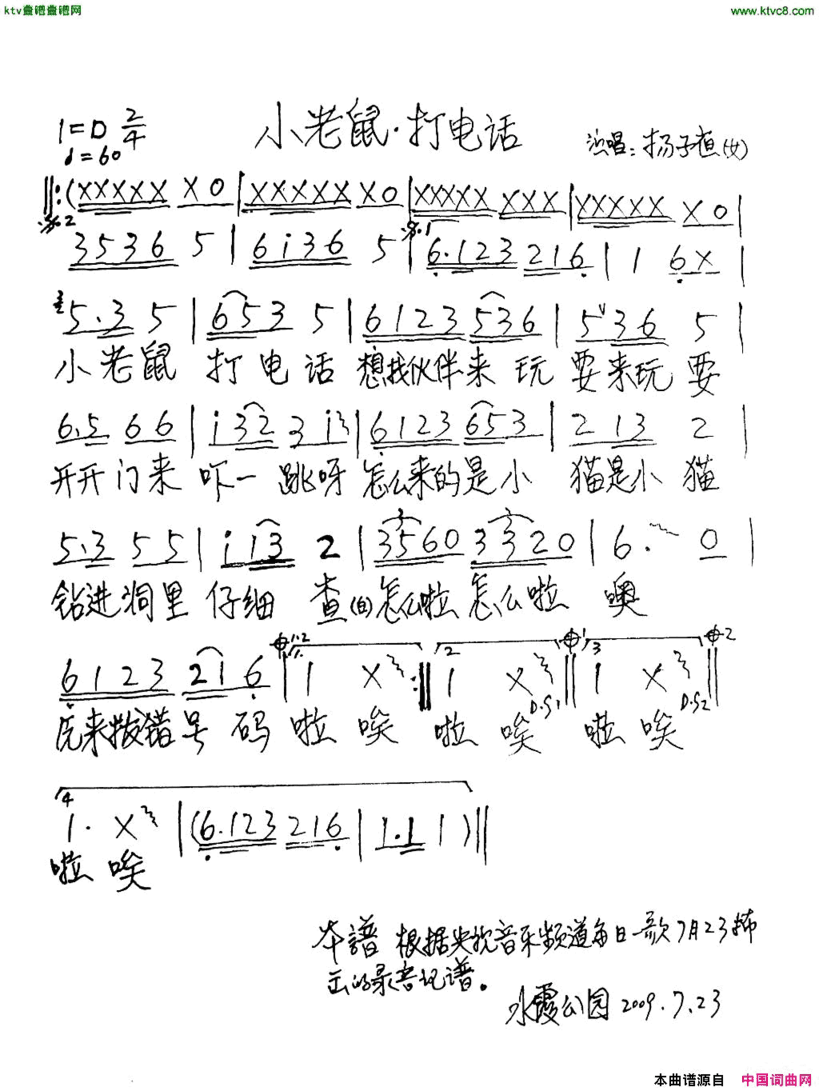 ktv查谱查谱网 www.ktvc8.com
1=D 2/4 小老鼠·打电话 演唱：杨子直(女)
♩=60
‖:(XXXXX X0|XXXXX X0|XXXXX XXX|XXXXX X0|
3536 5|6i36 5|6.123 216|1 6X|
5.3 5|653 5|6123 536|5 36 5|
小老鼠 打电话 想找伙伴来玩耍来玩耍
6.5 66|i32 3i|6123 653|2 13 2|
开开门来吓一跳呀怎么来的是小猫是小猫
5.3 55|ii3 2|3560 3320|6. 0|
钻进洞里仔细查(白)怎么啦怎么啦 噢
6123 216‖1 X:‖1 X‖1 X‖
1.2 2 1 3 2
D.S1 D.S2
原来拨错号码啦唉 啦唉 啦唉
4
1. X|(6.123 216|1.1 1)‖
啦唉
本譜 根据央视音乐频道每日一歌7月23播
出的录音记谱。
水霞公园 2009.7.23
本曲谱源自 中国词曲网